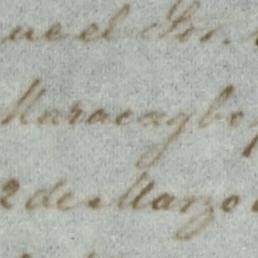 el Sor.
Maracaybo
2 de Marzo